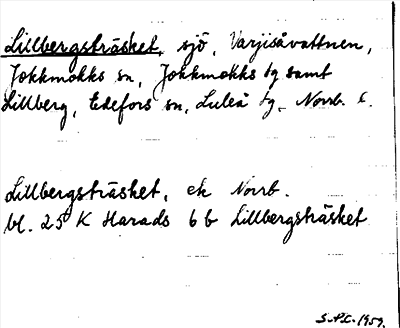 Lillbergsträsket, sjö, Varjisåvattnen,
Jokkmokks sn, Jokkmokks tg samt
Lillberg, Edefors sn, Luleå tg, Norrb. l.
Lillbergsträsket, ek Norrb.
bl. 25 K Harads 6 b Lillbergsträsket
1959.